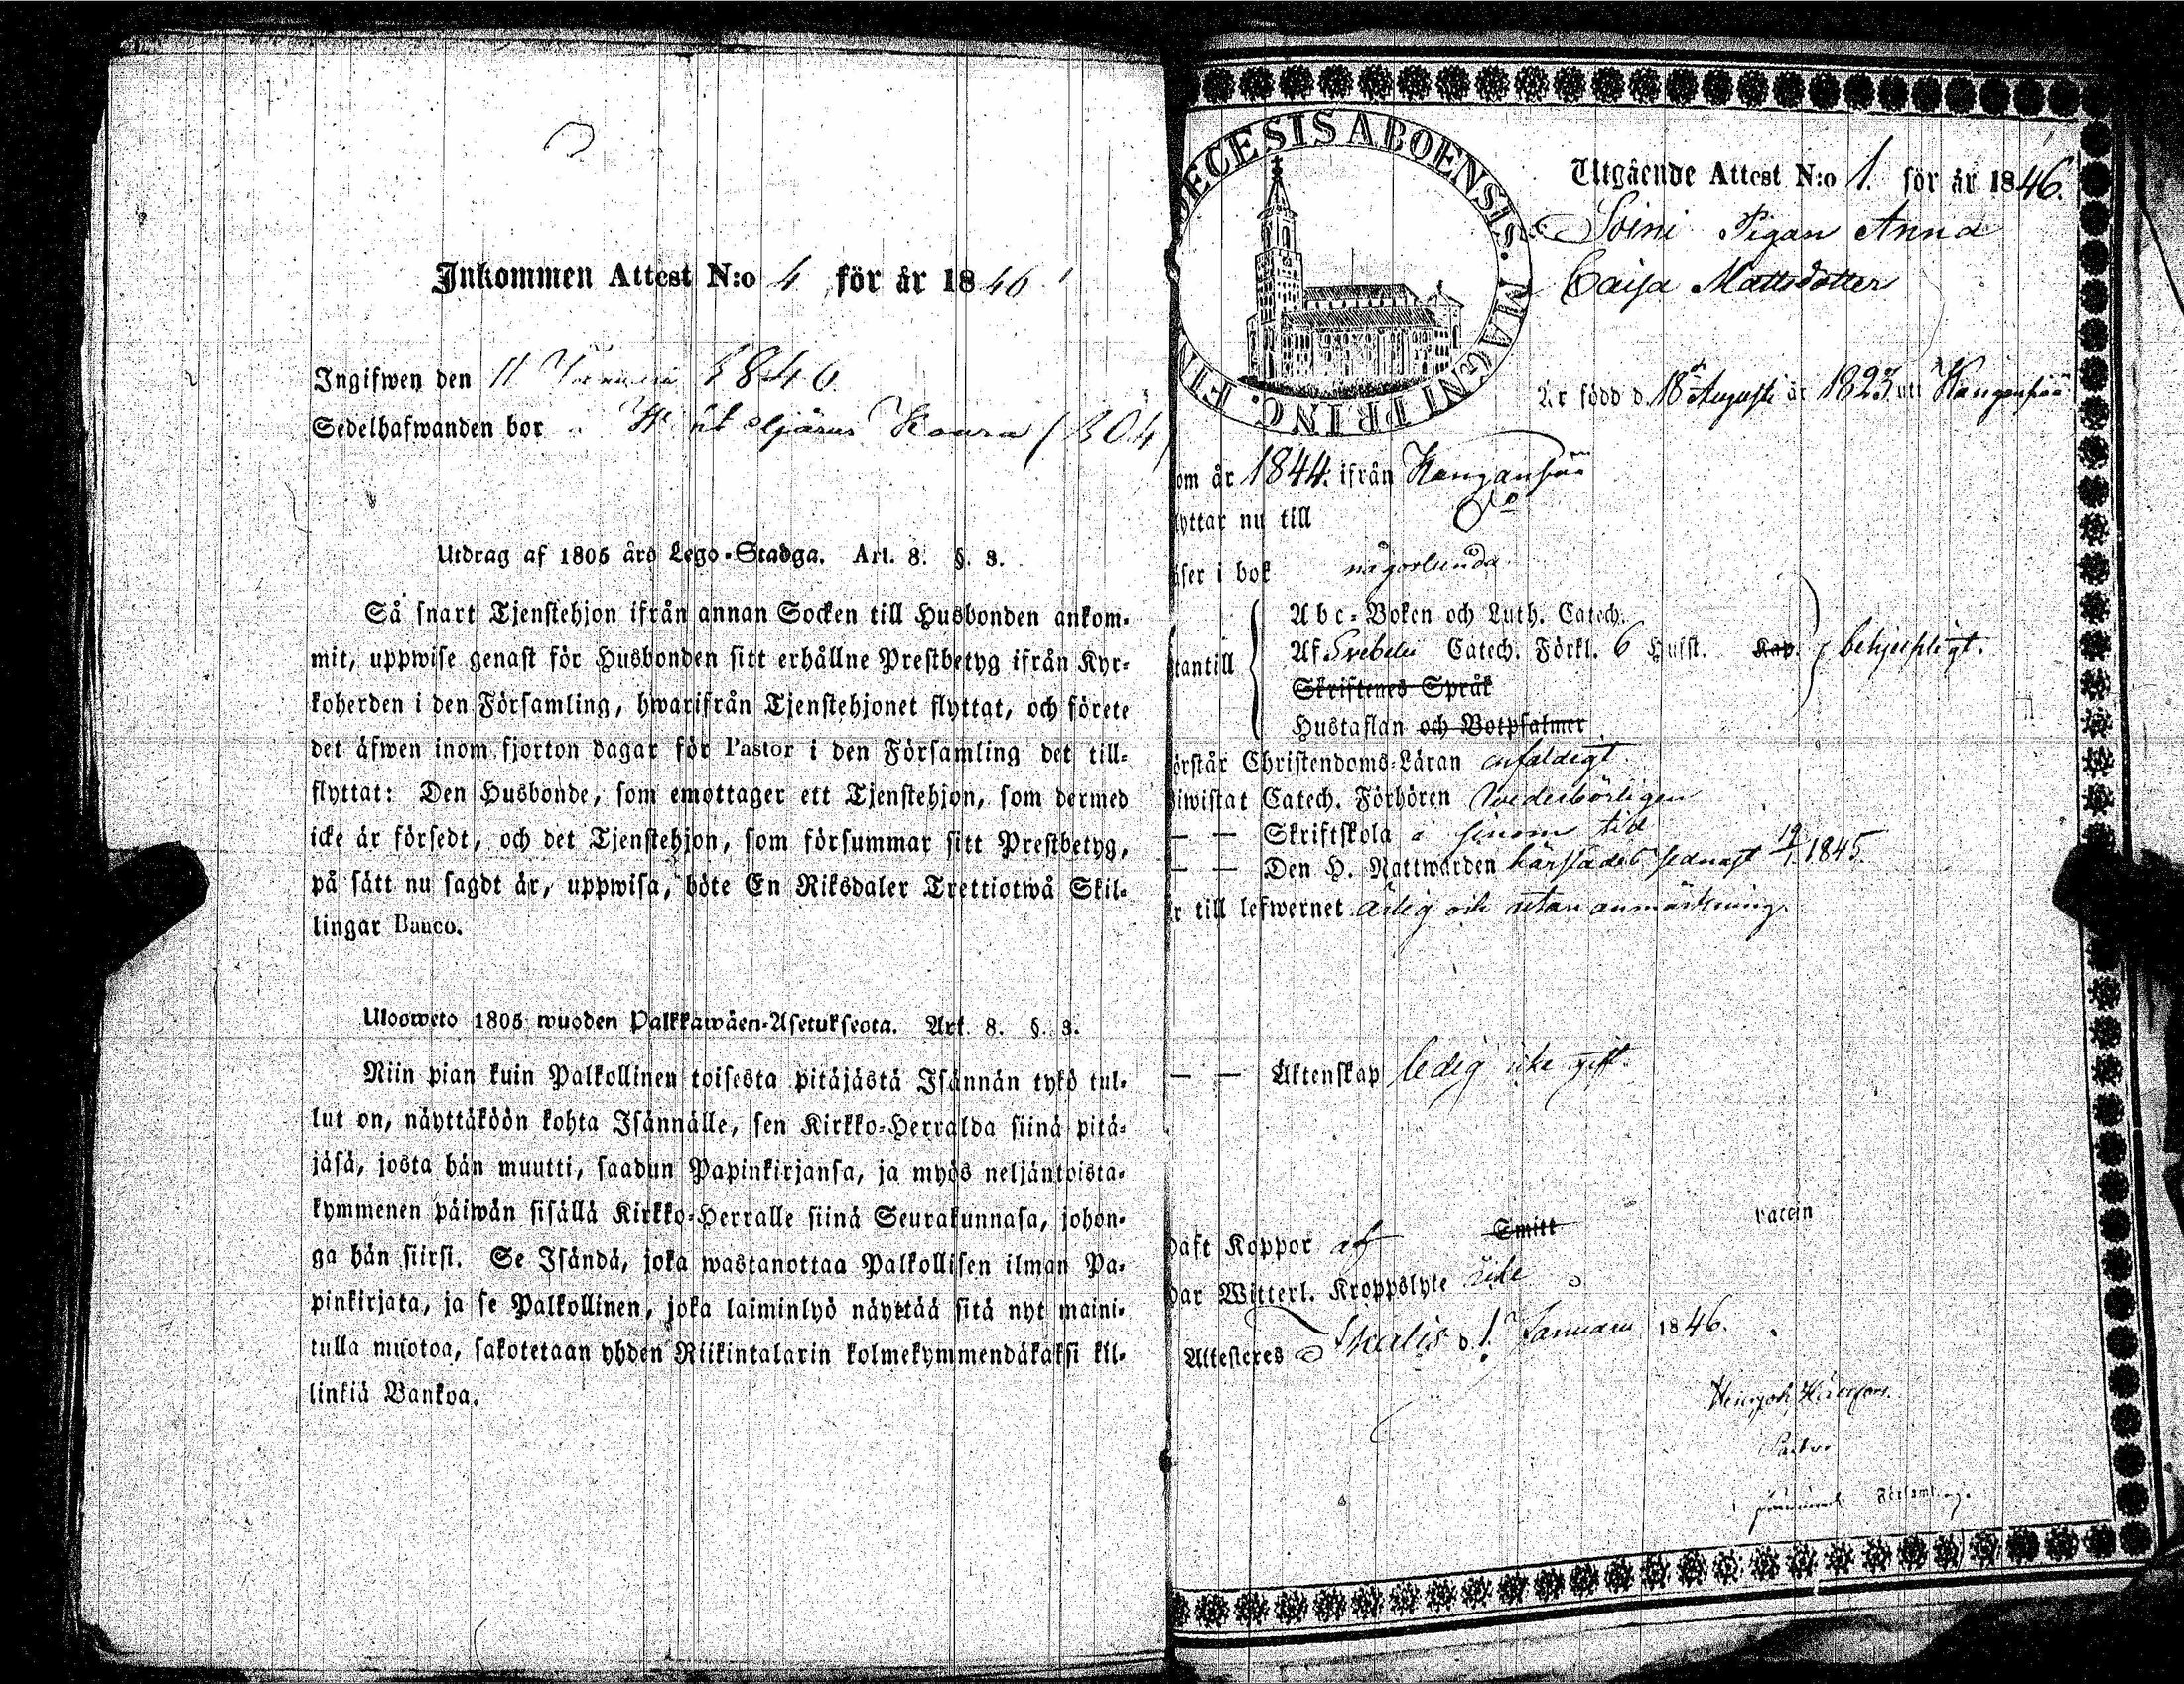 Inkommen Attest N:o 4 för år 1846
Ingifwen den 11 Januari 1846.
Sedelhafwanden bor
Utdrag af 1805 års Lego-Stadga. Art. 8. §. 3.
Så snart Tjenstehjon ifrån annan Socken till Husbonden ankom-
mit, uppwise genast för Husbonden sitt erhållne Prestbetyg ifrån Kyr-
koherden i den Församling, hwarifrån Tjenstehjonet flyttat, och förete
det äfwen inom fjorton dagar för Pastor i den Församling det till-
flyttat: Den Husbonde, som emottager ett Tjenstehjon, som dermed
icke är försedt, och det Tjenstehjon, som försummar sitt Prestbetyg,
på sätt nu sagdt är, uppwisa, böte En Riksdaler Trettiotwå Skil-
lingar Banco.
Ulosweto 1805 wuoden Palkkawäen-Asetuksesta. Art. 8. §. 3.
Niin pian kuin Palkollinen toisesta pitäjästä Isännän tykö tul-
lut on, näyttäköön kohta Isännälle, sen Kirkko-Herralda siinä pitä-
jäsä, josta hän muutti, saadun Papinkirjansa, ja myös neljäntoista-
kymmenen päiwän sisällä Kirkko-Herralle siinä Seurakunnasa, johon-
ga hän siirsi. Se Isändä, joka wastanottaa Palkollisen ilman Pa-
pinkirjata, ja se Palkollinen, joka laiminlyö näyttää sitä nyt maini-
tulla muotoa, sakotetaan yhden Riikintalarin kolmekymmendäkaksi kil-
linkiä Bankoa.
DECESIS ABOENSIS. MAGNI PRINC. FIN
Utgående Attest N:o 1. för år 1846.
Soini Pigan Anna
Caisa Mattsdotter
Är född d. 18 Augusti år 1823 uti Kangasniemi
om år 1844. ifrån
lyttar nu till D:o
äser i bok någorlunda
Abc-Boken och Luth. Catech.
tantill Af Svebelii Catech. Förkl. 6 Hufst. Kap. behjelpligt.
Skriftenes Språk
Hustaflan och Botpsalmer
örstår Christendoms-Läran enfaldigt
iwistat Catech. Förhören wederbörligen
— — Skriftskola i sinom tid
— — Den H. Nattwarden härstädes sednast 19/1. 1845.
r till lefwernet ärlig och utan anmärkning.
— — Äktenskap ledig icke gift.
haft Koppor af Smitt vaccin
har Witterl. Kroppslyte icke
Attesteres Ikalis d. 1. Januarii 1846.
Pastor
Församling.